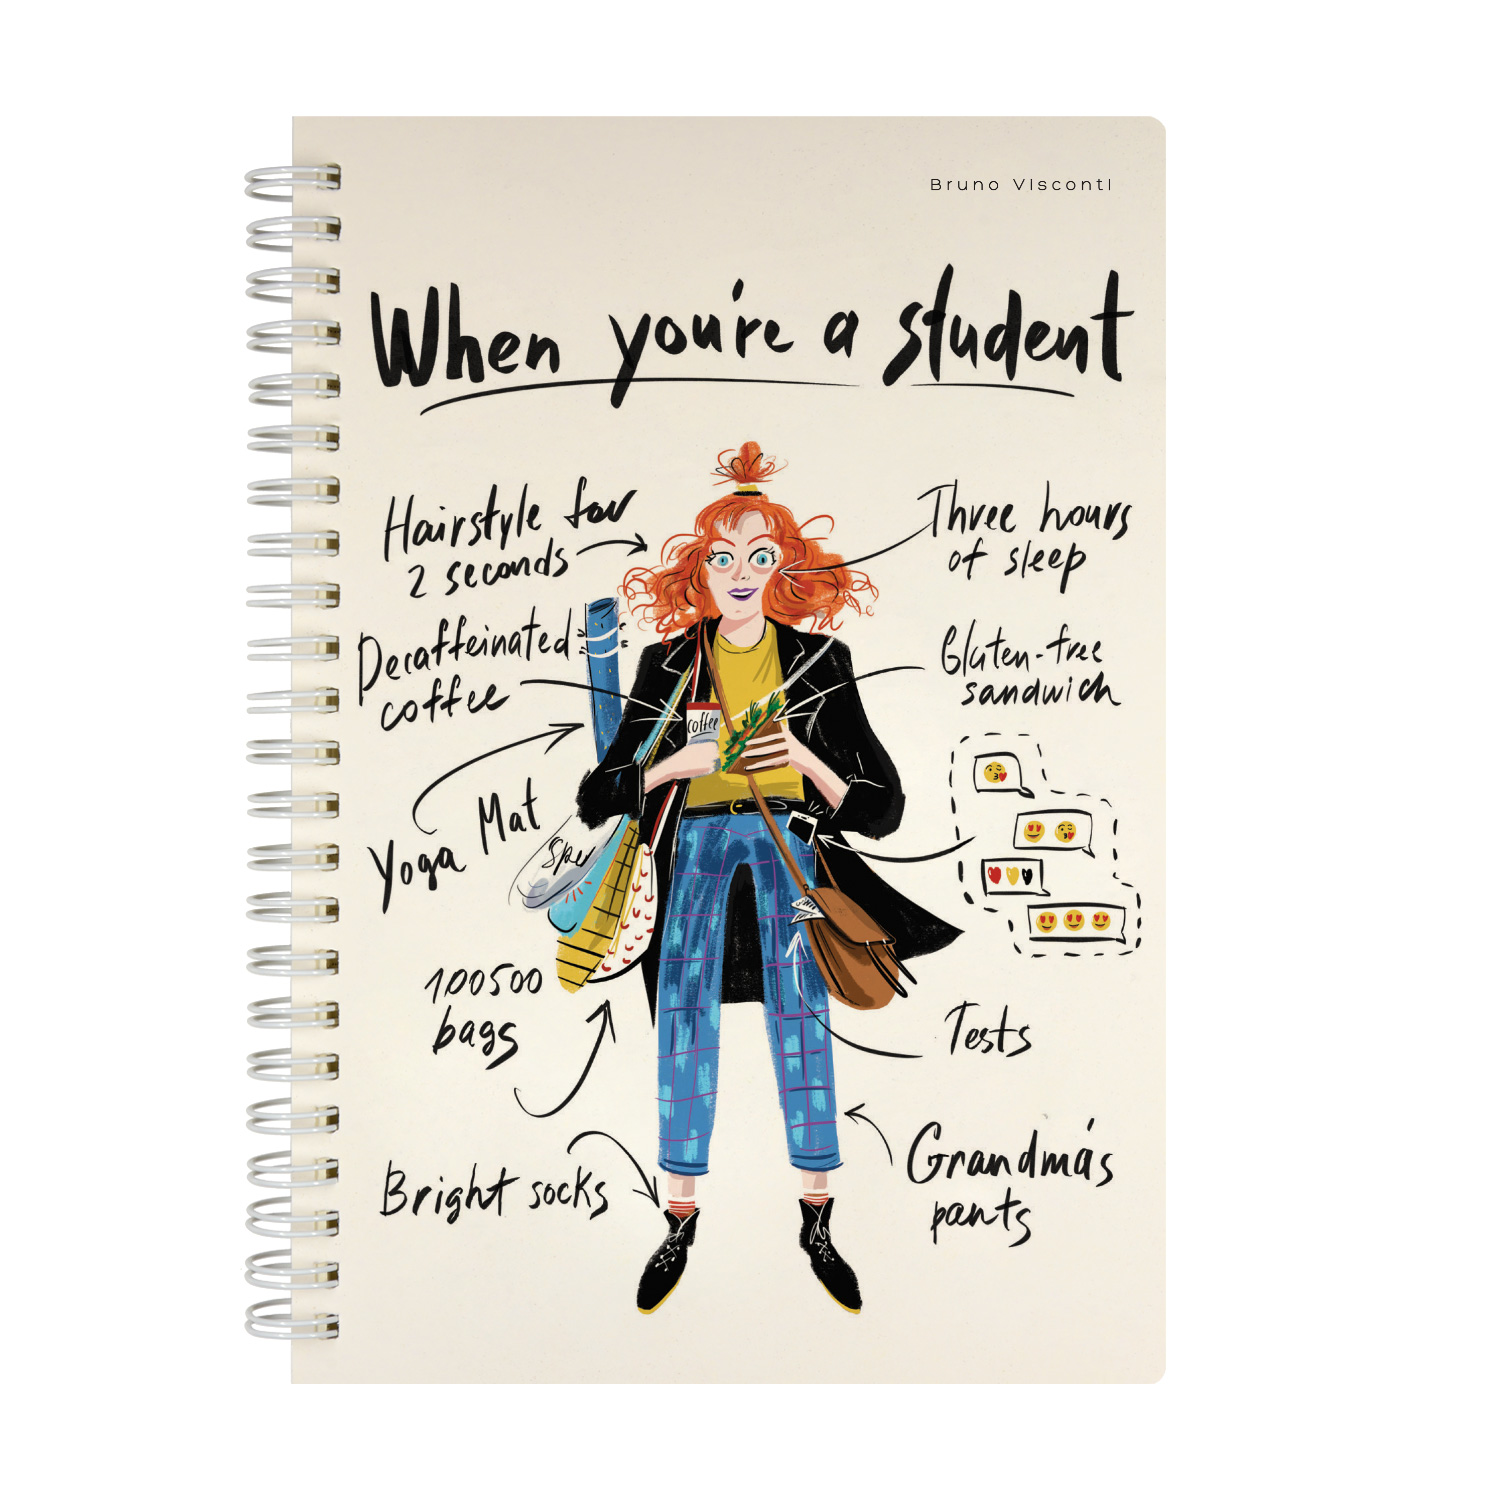 Bruno Visconti
When you're a student
Hairstyle for
2 seconds
Three hours
of sleep
Decaffeinated
coffee
Gluten-free
sandwich
coffee
Yoga Mat
Spe
100500
bags
Tests
Bright socks
Grandma's
pants